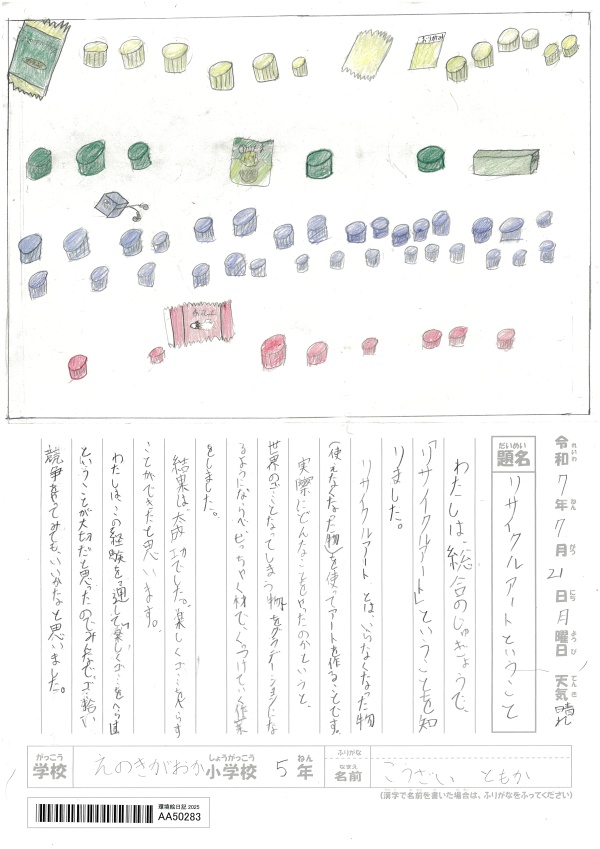 令和7年7月21日月曜日 天気 晴れ
れいわ ねん がつ にち ようび てんき
だいめい
題名 リサイクルアートということ
わたしは、総合のじゅぎょうで、
「リサイクルアート」ということを知
りました。
リサイクルアートとは、いらなくなった物
(使えなくなった物)を使ってアートを作ることです。
実際にどんなことをやったのかというと、
世界のごみとなってしまう物をグラデーションにな
るようにならべ、せっちゃく材で、くっつけていく作業
をしました。
結果は、大成功でした。楽しくごみをへらす
ことができたと思います。
わたしは、この経験を通して、楽しくごみをへらす
ということが大切だと思ったのでみんなで、ごみ拾い
競争をしてみても、いいかなと思いました。
がっこう しょうがっこう ねん
学校 えのきがおか小学校 5年
ふりがな
なまえ
名前 こうざい ともか
(漢字で名前を書いた場合は、ふりがなをふってください)
環境絵日記 2025
AA50283